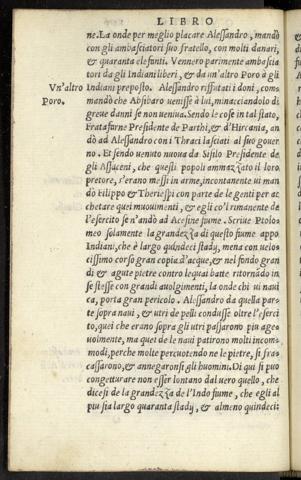 LIBRO
ne. La onde per meglio placare Alessandro, mandò
con gli ambasciatori suo fratello, con molti danari,
& quaranta elefanti. Vennero parimente ambascia
tori da gli Indiani liberi, & da un'altro Poro à gli
Vn'altro Poro.
Indiani preposto. Alessandro rifiutati i doni, com
mandò che Abisaro uenisse à lui, minacciandolo di
greue danni se non ueniua. Sendo le cose in tal stato,
Frataferne Presidente de Parthi, & d'Hircania, an
dò ad Alessandro con i Thraci lasciati al suo gouer
no. Et sendo uenuto nuoua da Sisilo Presidente de
gli Assaceni, che questi popoli ammazzato il loro
pretore, s'erano messi in arme, incontanente ui man
dò Filippo & Theriespi con parte de le genti per ac
chetare quei mouimenti, & egli co'l rimanente de
l'essercito se n'andò ad Acesine fiume. Scriue Ptolo
meo solamente la grandezza di questo fiume appo
Indiani, che è largo quindeci stady, mena con uelo
cissimo corso gran copia d'acque, & nel fondo gran
di & agute pietre contro le quai batte ritornãdo in
se stesse con grandi auolgimenti, la onde chi ui naui
ca, porta gran pericolo. Alessandro da quella par
te sopra naui, & utri de pelli condusse oltre l'eserci
to, quei che erano sopra gli utri passarono piu ageo
uolmente, ma quei de le naui patirono molti incom=
modi, perche molte percuotendo ne le pietre, si fra=
cassarono, & annegaronsi gli huomini. Di qui si puo
congetturare non esser lontano dal uero quello, che
dicesi de la grandezza de l'Indo fiume, che egli al
piu sia largo quaranta stady, & almeno quindeci: